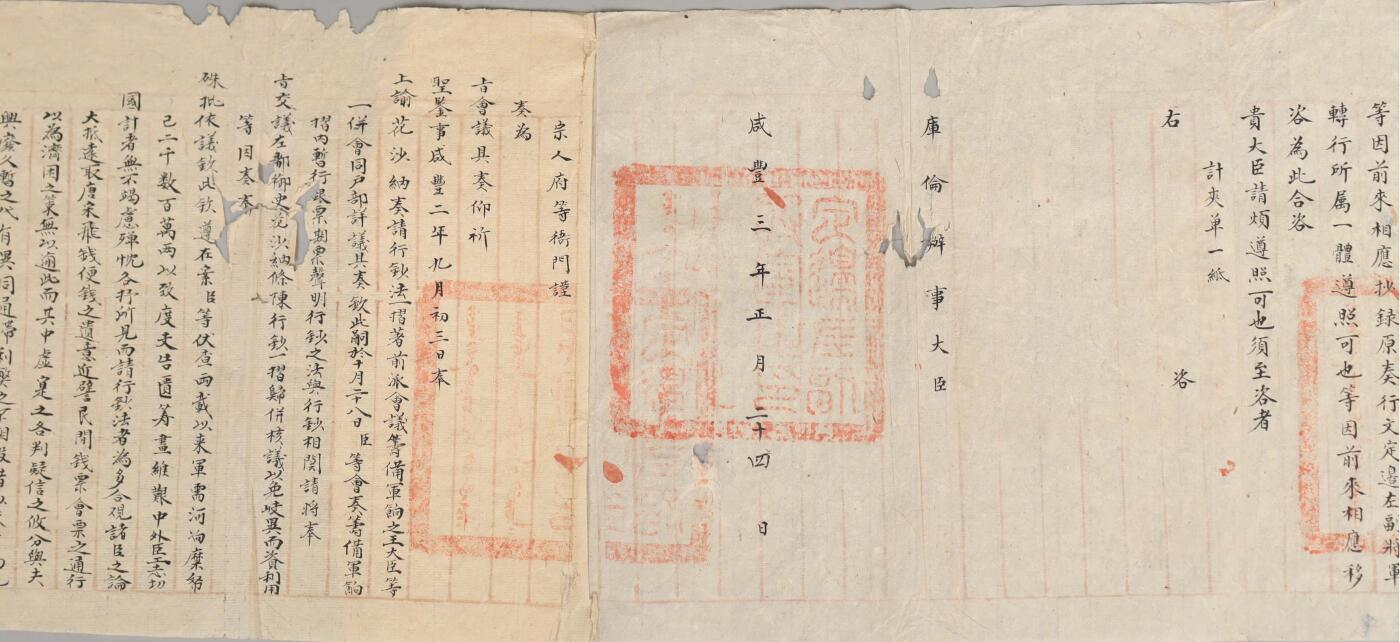 等因前來相應抄錄原奏行文定邊左副將軍
轉行所属一體遵照可也等因前來相應移
咨為此合咨
貴大臣請煩遵照可也須至咨者
計夾单一紙
右 咨
庫倫辦事大臣
咸豐三年正月二十四日
宗人府等衙門謹
奏為
旨會議具奏仰祈
聖鑒事咸豐二年九月初三日奉
上諭花沙納奏請行鈔法一摺著前派會議籌備軍餉之王大臣等
一併會同户部詳議具奏欽此嗣於十月二十八日臣等會奏籌備軍餉
摺内暫行銀票期票聲明行鈔之法與行鈔相関請將奉
旨交議左都御史花沙納條陳行鈔一摺歸併核議以免歧異而資利用
等因奏奉
硃批依議欽此欽遵在案臣等伏查兩載以来軍需河餉糜帑
已二千数百萬両以致度支告匱籌畫維艱中外臣工志切
國計者無不竭慮殫忱各抒所見而請行鈔法者為多合觀諸臣之論
大抵遠取唐宋飛钱便钱之遺意近譬民間钱票會票之通行
以為濟困之策無以逾此而其中虚寔之各判疑信之攸分與夫
興廢久暫之代有異同通滞利弊之不